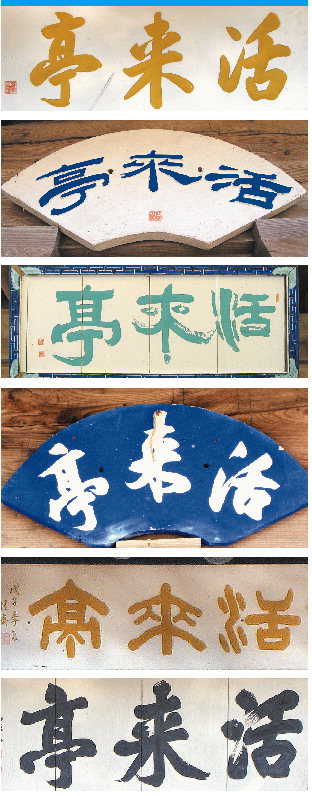 活来亭
活来亭
活来亭
活来亭
活來亭
活来亭